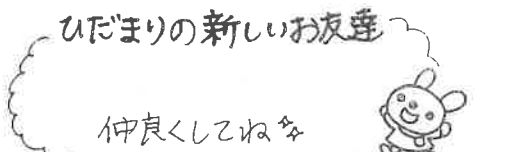 ひだまりの新しいお友達
仲良くしてね